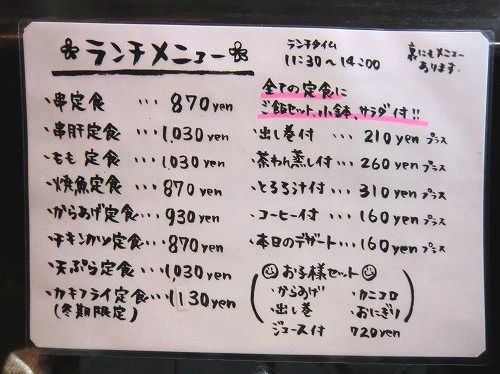 ランチメニュー
ランチタイム
11:30〜14:00
裏にもメニュー
あります.
・串定食 ・・・ 870yen
・串肝定食 ・・・ 1,030yen
・もも定食 ・・・ 1,030yen
・焼魚定食 ・・・ 870yen
・からあげ定食 ・・・ 930yen
・チキンカツ定食 ・・・ 870yen
・天ぷら定食 ・・・ 1,030yen
・カキフライ定食 ・・・ 1,130yen
(冬期限定)
全ての定食に
ご飯セット、小鉢、サラダ付!!
・出し巻付 ・・・ 210yenプラス
・茶わん蒸し付 ・・・ 260yenプラス
・とろろ汁付 ・・・ 310yenプラス
・コーヒー付 ・・・ 160yenプラス
・本日のデザート ・・・ 160yenプラス
お子様セット
・からあげ ・カニコロ
・出し巻 ・おにぎり
ジュース付 720yen